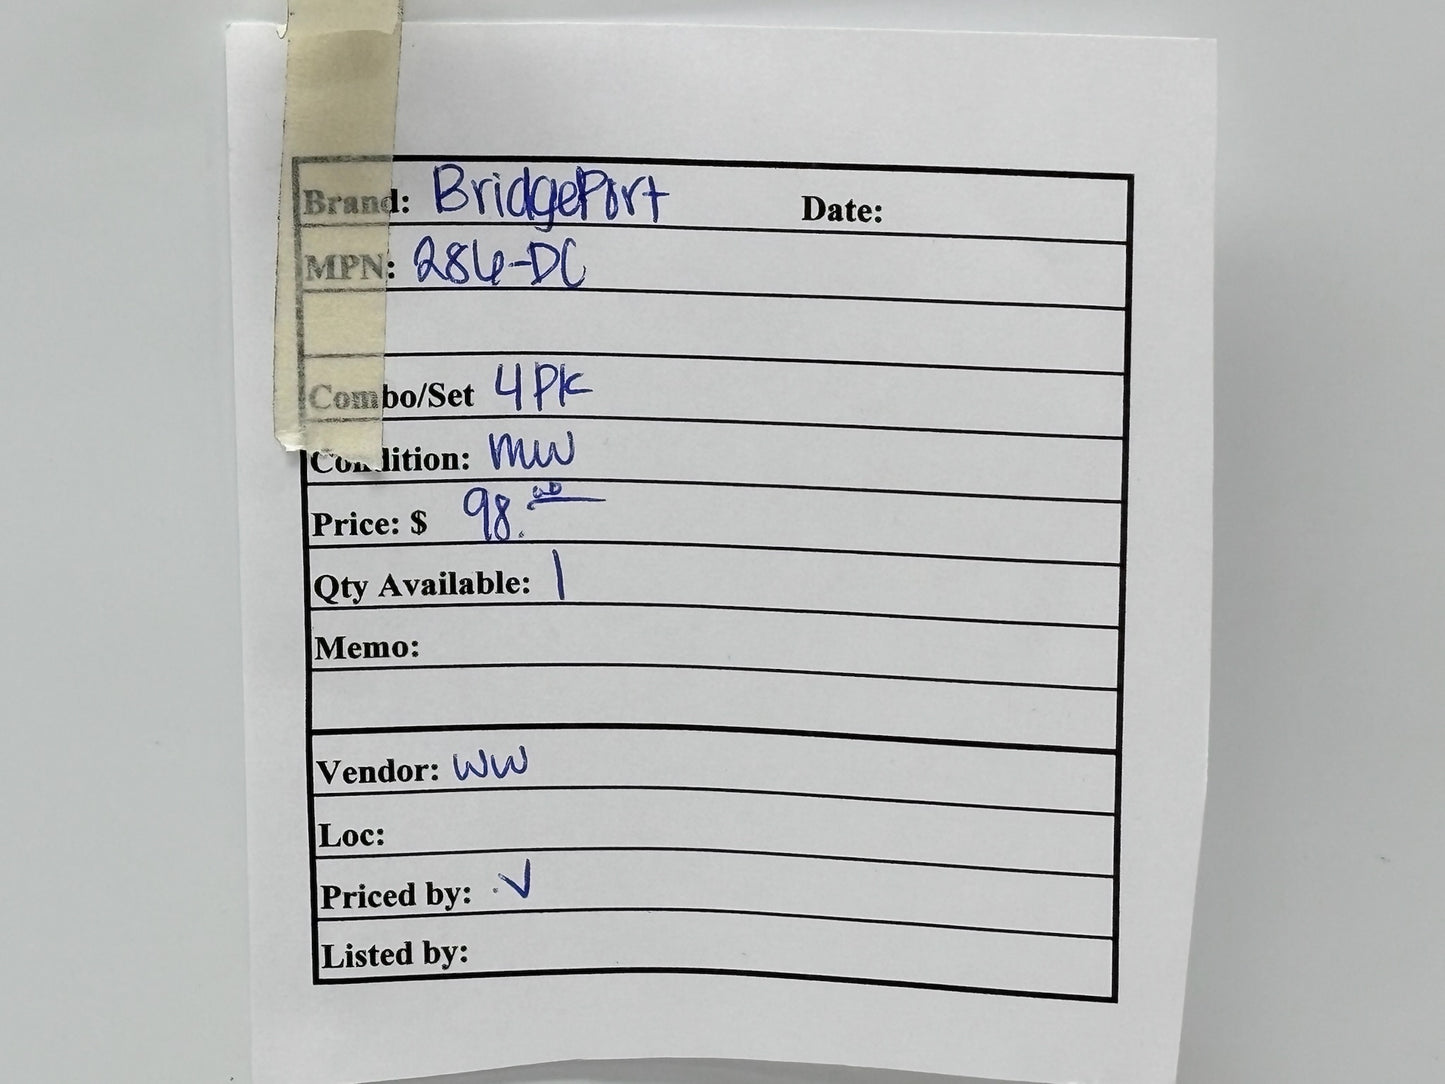 Brand: BridgePort Date:
MPN: 286-DC
Combo/Set 4PK
Condition: MW
Price: $ 98.00
Qty Available: 1
Memo:
Vendor: WW
Loc:
Priced by: ✓
Listed by: